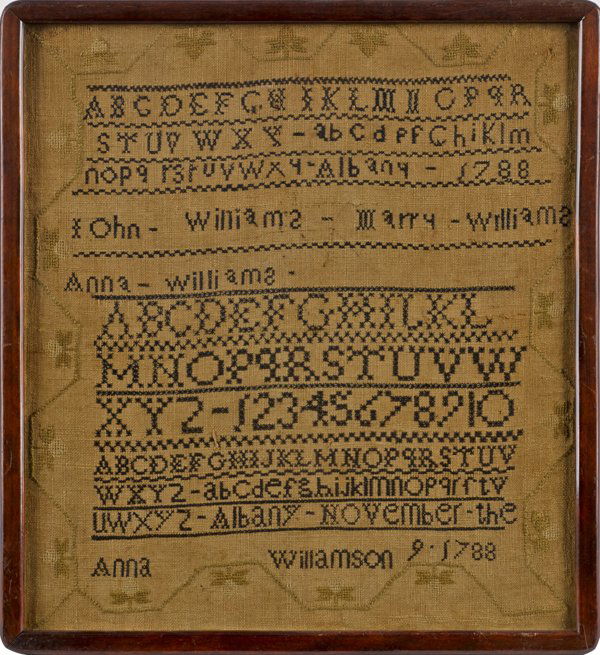 ABCDEFGHIKLMNOPQR
STUVWXY-abcdefChiKlm
nopqrsruvWxy-Albany-1788
IOhn-Williams-Marry-Williams
Anna-Williams-
ABCDEFGHILKL
MNOPQRSTUVW
XYZ-12345678910
ABCDEFGHIJKLMNOPQRSTUV
WXYZ-abcdefghijklmnopqrſtv
UWXYZ-Albany-November-the
Anna Willamson 9-1788